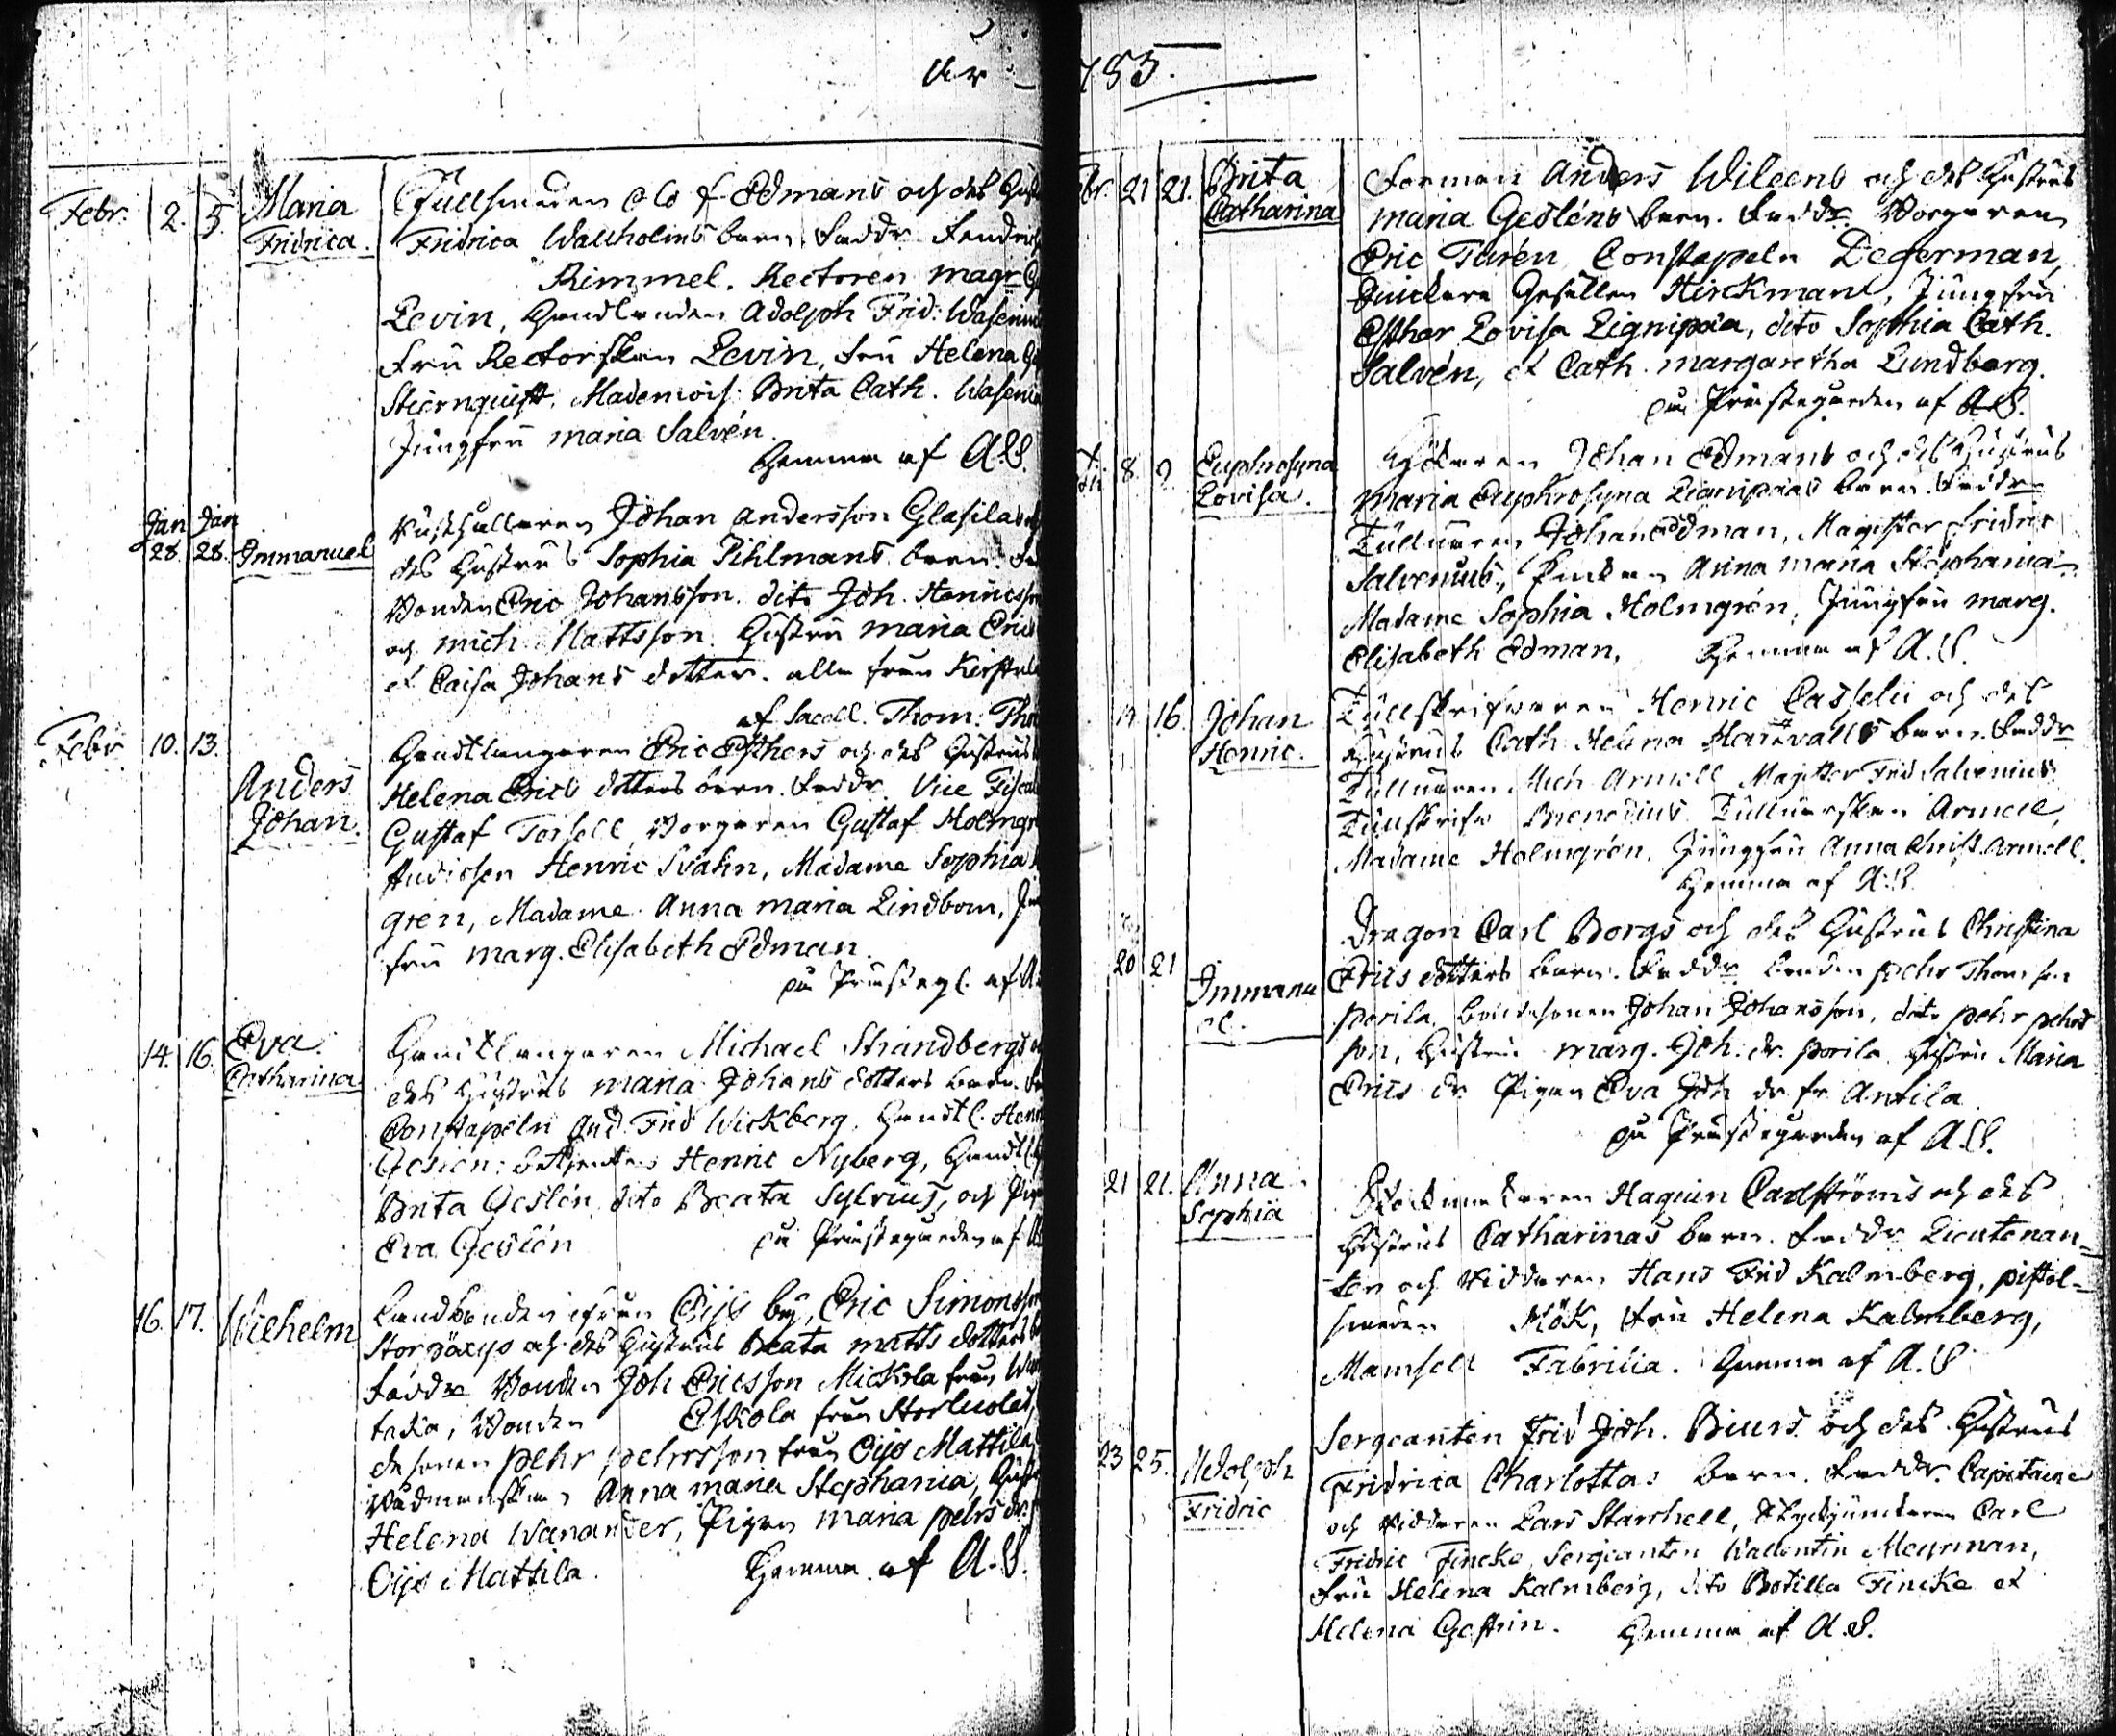 År 1785.
Febr. 2. 5. Maria Fridrica.
Gullsmeden Olof Edmans och des
Fridrica Wallholms barn. Faddr
Kimmel. Rectoren Magr
Levin, Handlanden Adolph Frid:
Fru Rectorskan Levin, Fru Helena
Stiernquist, Mademois: Brita Cath.
Jungfru Maria Salvén.
Hemma af A.S.
Jan 28. Jan 28. Immanuel
Rusthollaren Johan Andersson Glasilas
des Hustrus Sophia Pihlmans barn.
Bonden Eric Johansson. dito Joh.
och Mich Mattsson. Hustru Maria
et Caisa Johans dotter. alla från
af Sacell. Thom.
Febr 10. 13. Anders Johan.
Handtlangaren Eric Esthers och des Hustrus
Helena Erics dotters barn. Faddr. Vice
Gustaf Torsell, Borgaren Gustaf
Studiosen Henric Svahn, Madame Sophia
gren, Madame Anna Maria Lindbom,
fru Marg. Elisabeth Edman.
på Prästeg. af
14. 16. Eva Catharina
Handtlangaren Michael Strandbergs
des Hustrus Maria Johans dotters barn.
Constapeln And. Frid Wickberg, Handtl.
Geslén: betjenten Henric Nyberg, Handtl.
Brita Geslén, dito Beata Sylvius, och
Eva Geslén på Prästegården af
16. 17. Wilhelm
Landbonden ifrån Öijs by, Eric Simonsson
och des Hustrus Beata Matts dotters
Faddr Bonden Joh Ericsson Mickola från
Bonden Eskola från
Pehr Pehrsson från Öijs Mattila,
Anna Maria Stephania,
Helena Wanander, Pigan Maria Pehrs dr.
Öijs Mattila. Hemma af A.S.
21 21. Brita Catharina
Formen Anders Wileens och des Hustrus
Maria Gesléns barn. Faddr. Borgaren
Eric Turén, Constapeln Degerman,
Gesällen Hirckman, Jungfru
Esther Lovisa Lignipæa, dito Sophia Cath.
Salvén, et Cath. Margaretha Lundberg.
på Prästegården af A.S.
8. 9. Euphrosyna Lovisa.
Johan Edmans och des Hustrus
Maria Euphrosyna Lignipæas barn. Faddr
Tullnären Johan Edman, Magister Fridric
Salvenius, Enkan Anna Maria Stephania
Madame Sophia Holmgrén, Jungfru Marg.
Elisabeth Edman. Hemma af A.S.
14 16. Johan Henric.
Tullskrifvaren Henric Casseli och des
Hustrus Cath Helena barn. Faddr
Tullnären Mich Armell Magister Frid Salvenius
Tullskrifv Tullnärskan Armell,
Madame Holmgrén, Jungfru Anna Christ. Armell.
Hemma af A.S.
20 21 Immanuel.
Dragon Carl Borgs och des Hustrus Christina
Erics dotters barn. Faddr bonden Pehr Thomsson
Porila, bondesonen Johan Johansson, dito Pehr Pehrs
son, Hustru Marg. Joh. dr. Porila, Hustru Maria
Erics dr Pigan Eva Joh dr fr Antila
på Prästegården af A.S.
21 21. Anna Sophia
Stockmakaren Haquin Carlströms och des
Hustrus Catharinas barn. Faddr Lieutenan-
ten och Riddaren Hans Frid Kalmberg, pistol-
smeden Hök, Fru Helena Kalmberg,
Mamsell Fabricia. Hemma af A.S
23 25. Adolph Fridric
Sergeanten Frid Joh. Biurs och des Hustrus
Fridrica Charlottas barn. Faddr. Capitaine
och Riddaren Lars Starckell, Styckjunkaren Carl
Fridric Fincke, Sergeanten Wallentin Meyrman,
Fru Helena Kalmberg, dito Botilla Fincke et
Helena Gestrin. Hemma af A.S.